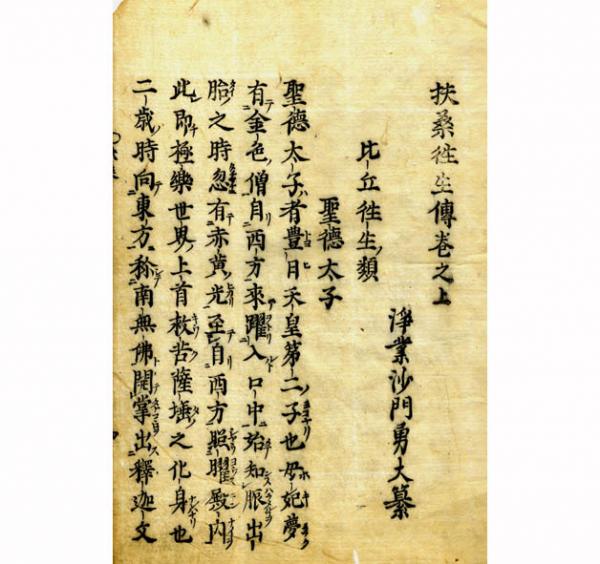 扶桑徃生傳巻之上
淨業沙門勇大纂
比丘徃生類
聖德太子
聖德太子者豊日天皇第二子也母妃夢
有金色僧自西方來躍入口中始知脤出
胎之時忽有赤黄光至自西方照曜殿内
此即極樂世界上首救苦薩埵之化身也
二歳時向東方称南無佛開掌出釋迦文